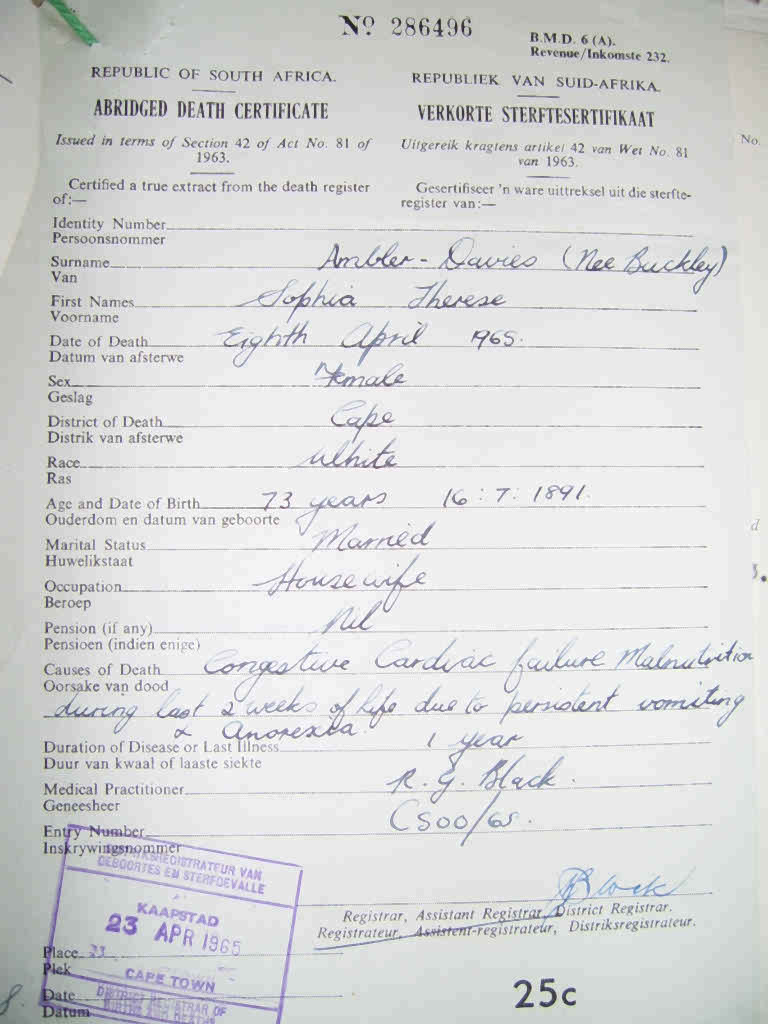 No 286496
B.M.D. 6 (A).
Revenue/Inkomste 232.
REPUBLIC OF SOUTH AFRICA.
ABRIDGED DEATH CERTIFICATE
Issued in terms of Section 42 of Act No. 81 of
1963.
Certified a true extract from the death register
of:—
REPUBLIEK VAN SUID-AFRIKA.
VERKORTE STERFTESERTIFIKAAT
Uitgereik kragtens artikel 42 van Wet No. 81
van 1963.
Gesertifiseer 'n ware uittreksel uit die sterfte-
register van:—
No.
Identity Number
Persoonsnommer
Surname Ambler-Davies (Nee Buckley)
Van
First Names Sophia Therese
Voorname
Date of Death Eighth April 1965.
Datum van afsterwe
Sex Female
Geslag
District of Death Cape
Distrik van afsterwe
Race White
Ras
Age and Date of Birth 73 years 16:7:1891.
Ouderdom en datum van geboorte
Marital Status Married
Huwelikstaat
Occupation Housewife
Beroep
Pension (if any) Nil
Pensioen (indien enige)
Causes of Death Congestive Cardiac failure Malnutrition
Oorsake van dood
during last 2 weeks of life due to persistent vomiting
& Anorexia.
Duration of Disease or Last Illness 1 year
Duur van kwaal of laaste siekte
Medical Practitioner R. G. Black.
Geneesheer
Entry Number C500/65.
Inskrywingsnommer
DISTRIKSREGISTRATEUR VAN
GEBOORTES EN STERFGEVALLE
KAAPSTAD
23 APR 1965
CAPE TOWN
DISTRICT REGISTRAR OF
BIRTHS AND DEATHS
Registrar, Assistant Registrar, District Registrar.
Registrateur, Assistent-registrateur, Distriksregistrateur.
Place
Plek
Date
Datum
25c